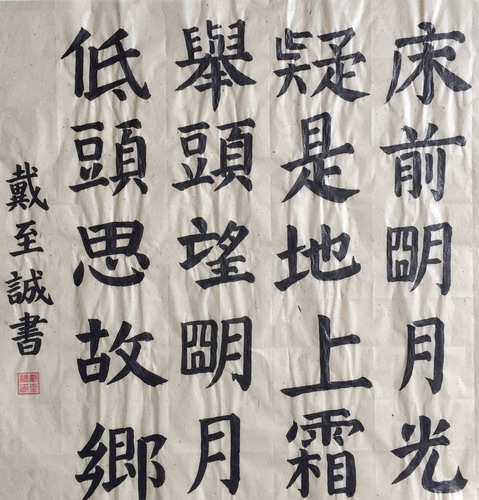 床前朙月光
疑是地上霜
舉頭望朙月
低頭思故鄉
戴至誠書